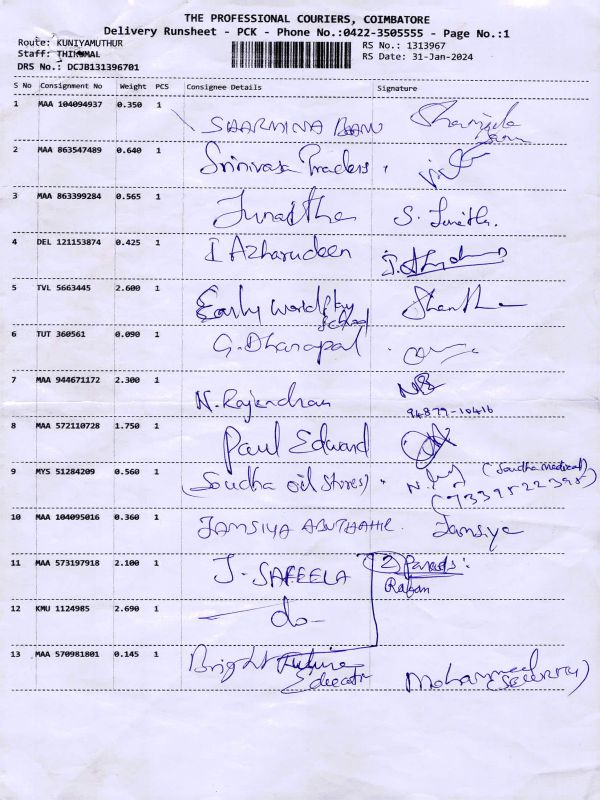 THE PROFESSIONAL COURIERS, COIMBATORE
Delivery Runsheet - PCK - Phone No.:0422-3505555 - Page No.:1
Route: KUNIYAMUTHUR
RS No.: 1313967
Staff: THIRUMAL
RS Date: 31-Jan-2024
DRS No.: DCJB131396701
S No Consignment No Weight PCS Consignee Details Signature
1 MAA 104094937 0.350 1 SHARMINA BANU
2 MAA 863547489 0.640 1 Srinivasa Traders
3 MAA 863399284 0.565 1 S. Sunitha.
4 DEL 121153874 0.425 1 I Azharudeen
5 TVL 5663445 2.600 1 Early World Play School Shantha
6 TUT 360561 0.090 1 G. Dhanapal
7 MAA 944671172 2.300 1 N. Rajendran
94879-10416
8 MAA 572110728 1.750 1 Paul Edward
9 MYS 51284209 0.560 1 (Soudha oil Stores) (Soudha medical)
(7339522395)
10 MAA 104095016 0.360 1 JAMSIYA ABUTHAHIR Jamsiya
11 MAA 573197918 2.100 1 J. SAFEELA 2 Parcels:
12 KMU 1124985 2.690 1 - do -
13 MAA 570981801 0.145 1 Bright Future Mohammed
(Security)